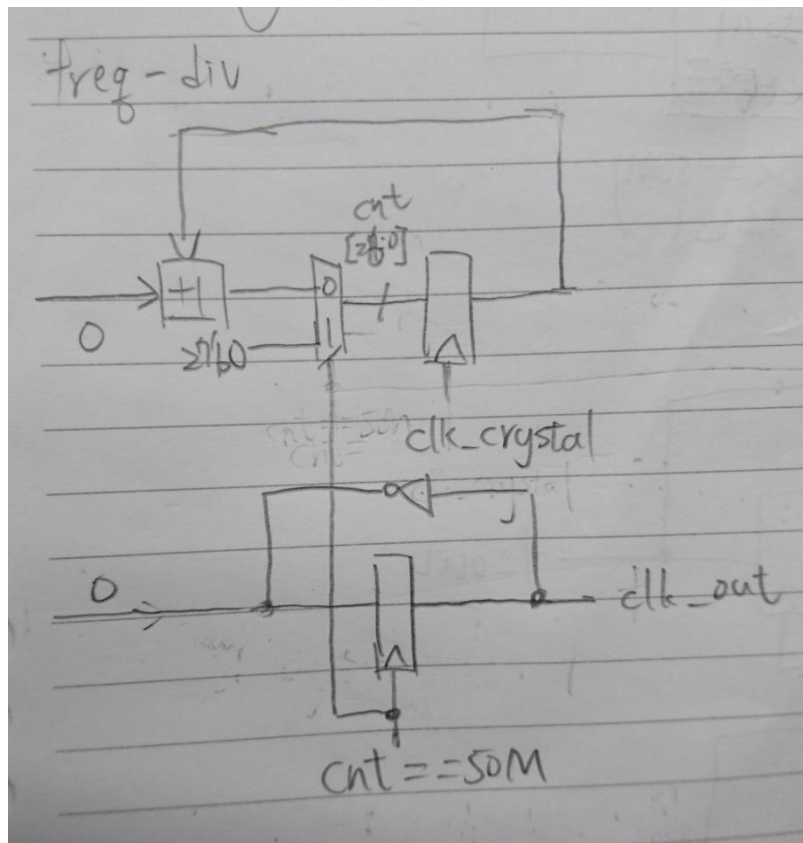 freq-div
cnt
+1
0
1
0
27'b0
clk_crystal
0
clk_out
cnt==50M